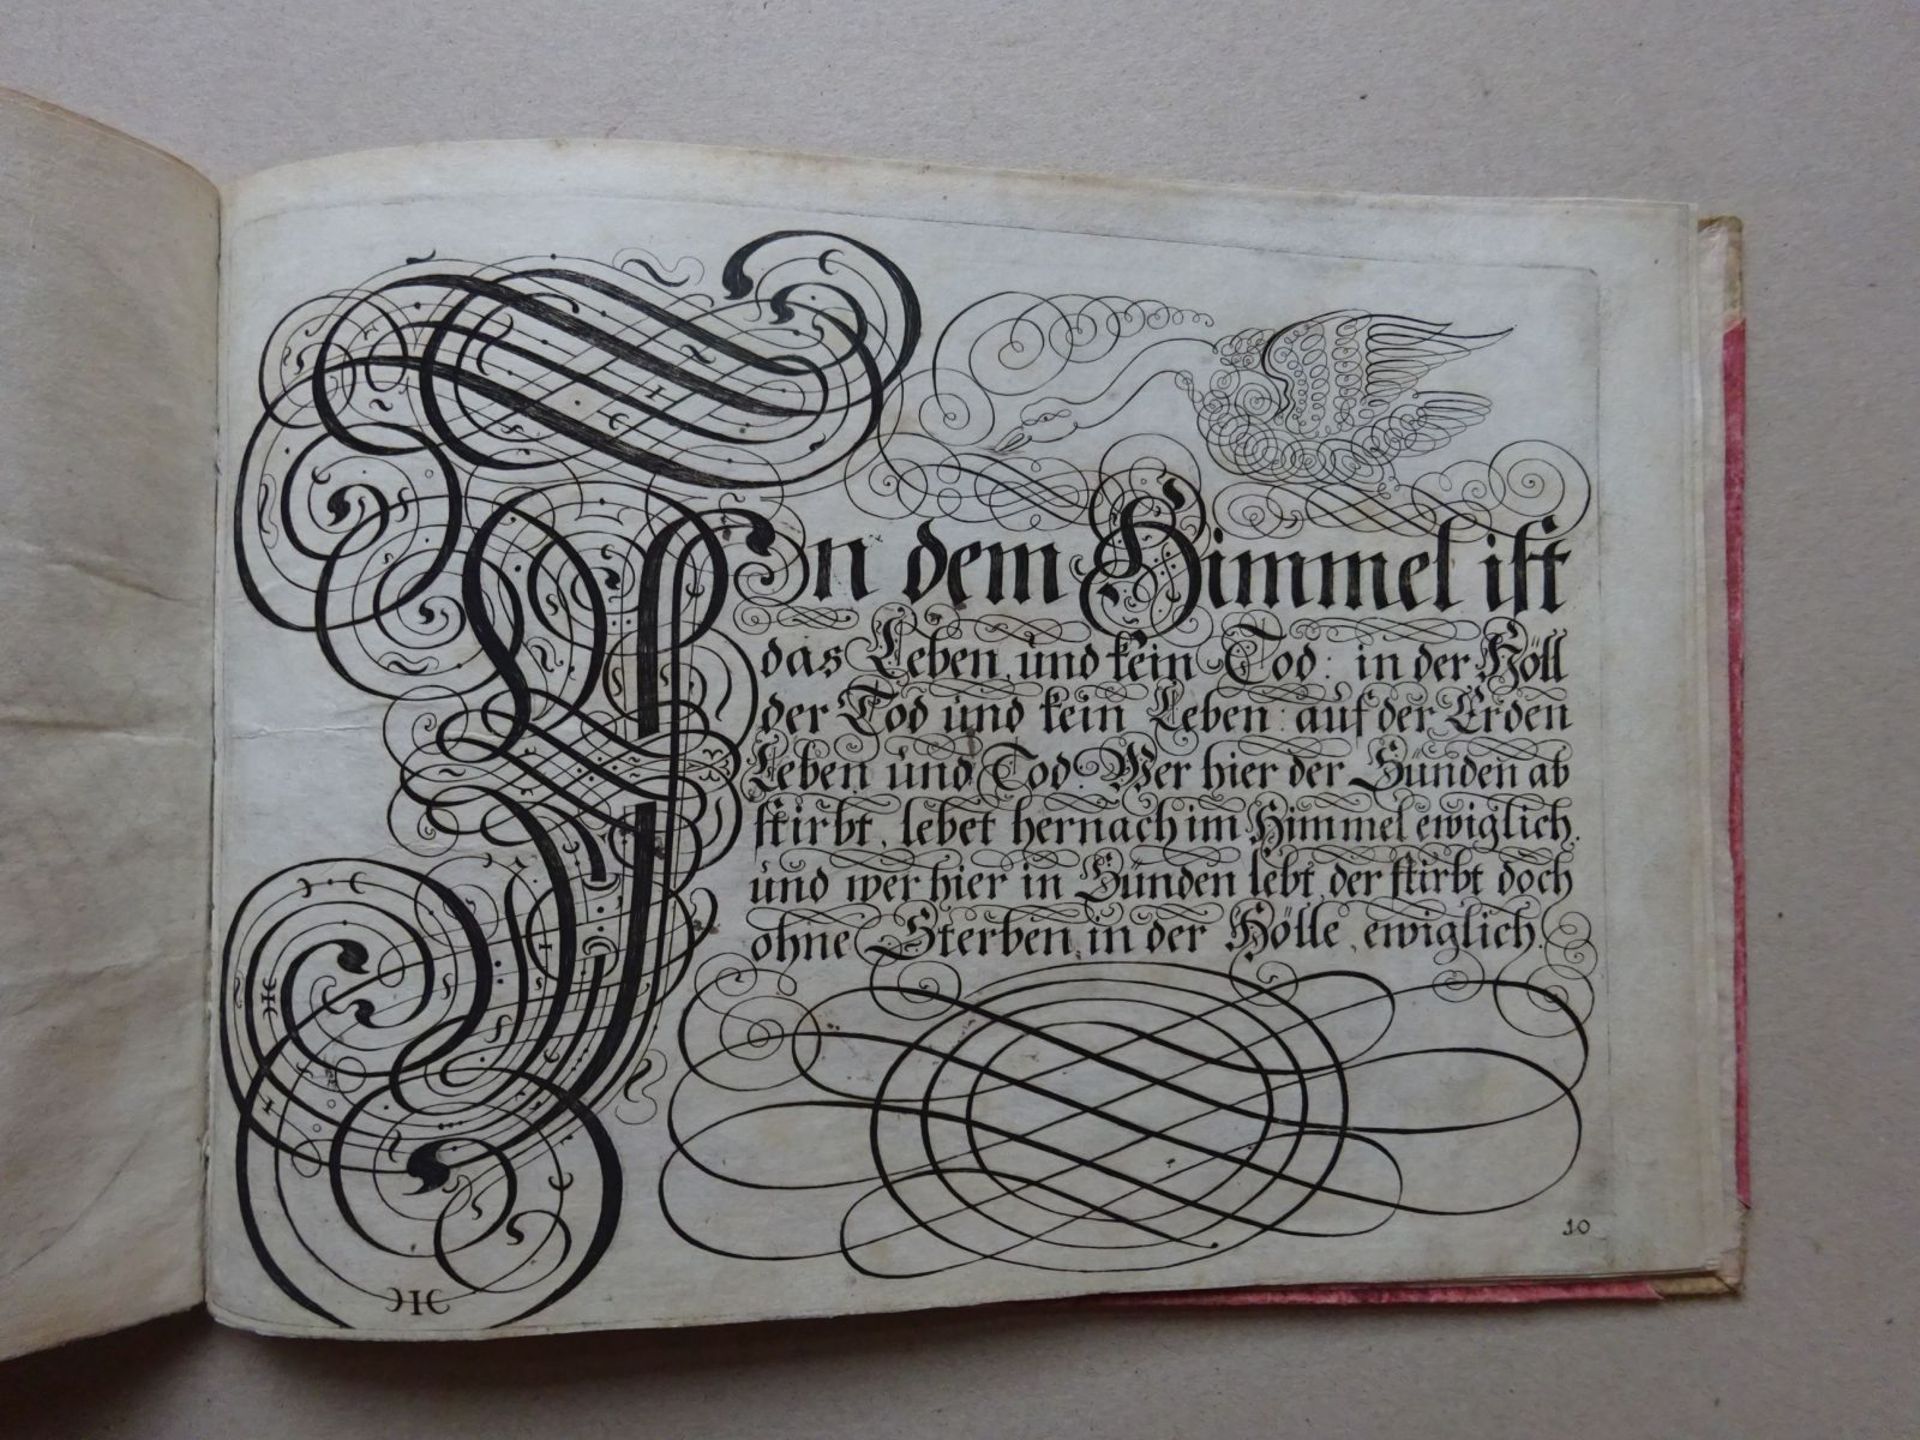 In dem Himmel ist
das Leben, und kein Tod: in der Höll
der Tod und kein Leben: auf der Erden
Leben und Tod. Wer hier der Sünden ab
stirbt, lebet hernach im Himmel ewiglich.
und wer hier in Sünden lebt, der stirbt doch
ohne Sterben, in der Hölle, ewiglich.
10